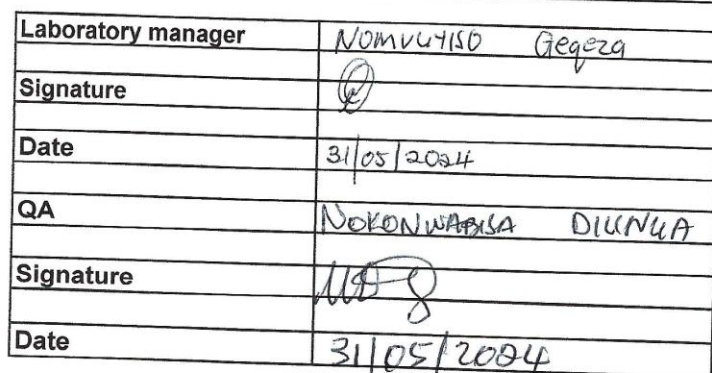 Laboratory manager NOMVUYISO Geqeza
Signature
Date 31/05/2024
QA NOKONWABISA DIKENYA
Signature
Date 31/05/2024